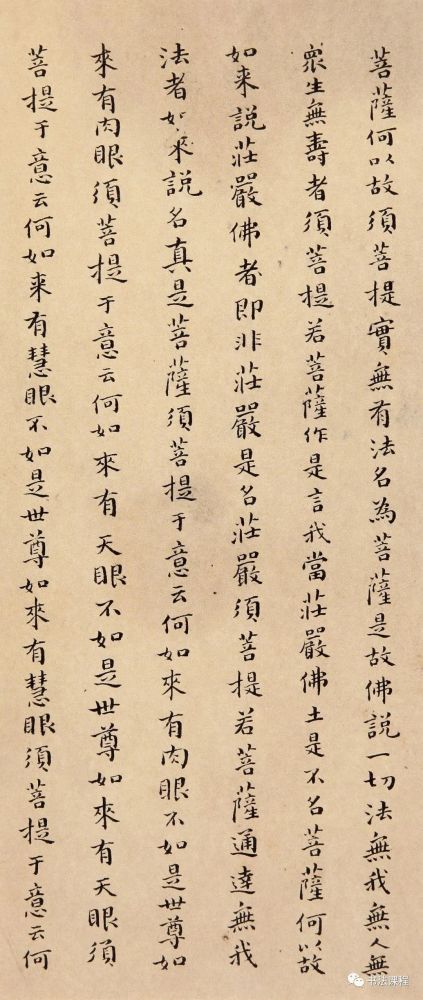 菩薩何以故須菩提實無有法名為菩薩是故佛說一切法無我無人無
衆生無壽者須菩提若菩薩作是言我當莊嚴佛土是不名菩薩何以故
如来說莊嚴佛者即非莊嚴是名莊嚴須菩提若菩薩通達無我
法者如来說名真是菩薩須菩提于意云何如來有肉眼不如是世尊如
來有肉眼須菩提于意云何如來有天眼不如是世尊如來有天眼須
菩提于意云何如来有慧眼不如是世尊如來有慧眼須菩提于意云何
书法课程